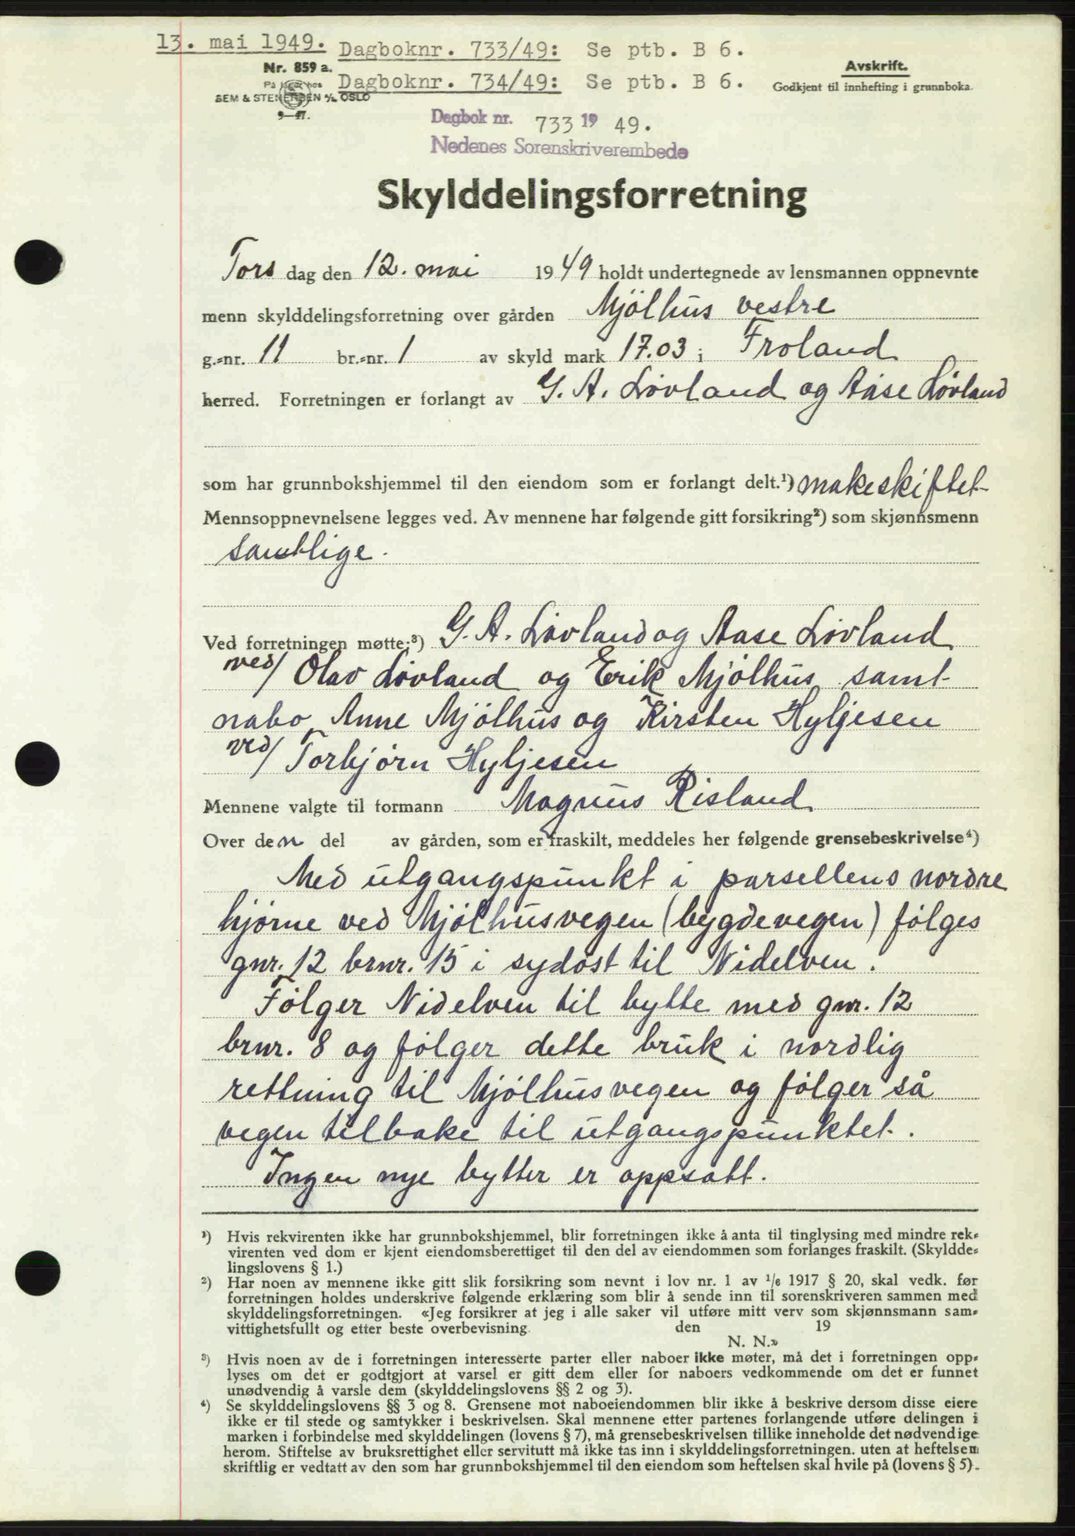 13. mai 1949. Dagboknr. 733/49: Se ptb. B 6.
Nr. 859 a. Dagboknr. 734/49: Se ptb. B 6.
Avskrift.
Godkjent til innhefting i grunnboka.
SEM & STENERSEN A/S OSLO
9—47.
Dagbok nr. 733 19 49.
Nedenes Sorenskriverembede
Skylddelingsforretning
Tors dag den 12. mai 1949 holdt undertegnede av lensmannen oppnevnte
menn skylddelingsforretning over gården Mjölhus vestre
g.-nr. 11 br.-nr. 1 av skyld mark 17.03 i Froland
herred. Forretningen er forlangt av G. A. Lövland og Aase Lövland
som har grunnbokshjemmel til den eiendom som er forlangt delt.¹) makeskiftet
Mennsoppnevnelsene legges ved. Av mennene har følgende gitt forsikring²) som skjønnsmenn
samtlige.
Ved forretningen møtte:³) G. A. Lövland og Aase Lövland
ved/ Olav Lövland og Erik Mjölhus samt
nabo Anne Mjölhus og Kirsten Hyljesen
ved/ Torbjörn Hyljesen
Mennene valgte til formann Magnus Risland
Over den del av gården, som er fraskilt, meddeles her følgende grensebeskrivelse⁴)
Med utgangspunkt i parsellens nordre
hjörne ved Mjölhusvegen (bygdevegen) fölges
gnr. 12 brnr. 15 i sydöst til Nidelven.
Fölger Nidelven til bytte med gnr. 12
brnr. 8 og fölger dette bruk i nordlig
rettning til Mjölhusvegen og fölger så
vegen tilbake til utgangspunktet.
Ingen nye bytter er oppsatt.
¹) Hvis rekvirenten ikke har grunnbokshjemmel, blir forretningen ikke å anta til tinglysing med mindre rek-
virenten ved dom er kjent eiendomsberettiget til den del av eiendommen som forlanges fraskilt. (Skyldde-
lingslovens § 1.)
²) Har noen av mennene ikke gitt slik forsikring som nevnt i lov nr. 1 av 1/6 1917 § 20, skal vedk. før
forretningen holdes underskrive følgende erklæring som blir å sende inn til sorenskriveren sammen med
skylddelingsforretningen. «Jeg forsikrer at jeg i alle saker vil utføre mitt verv som skjønnsmann sam-
vittighetsfullt og etter beste overbevisning. den 19
N. N.»
³) Hvis noen av de i forretningen interesserte parter eller naboer ikke møter, må det i forretningen opp-
lyses om det er godtgjort at varsel er gitt dem eller for naboers vedkommende om det er funnet
unødvendig å varsle dem (skylddelingslovens §§ 2 og 3).
⁴) Se skylddelingslovens §§ 3 og 8. Grensene mot naboeiendommen blir ikke å beskrive dersom disse eiere
ikke er til stede og samtykker i beskrivelsen. Skal mennene etter partenes forlangende utføre delingen i
marken i forbindelse med skylddelingen (lovens § 7), må grensebeskrivelsen tillike inneholde det nødvendige
herom. Stiftelse av bruksrettighet eller servitutt må ikke tas inn i skylddelingsforretningen. uten at heftelsen
skriftlig er vedtatt av den som har grunnbokshjemmel til den eiendom som heftelsen skal hvile på (lovens § 5).